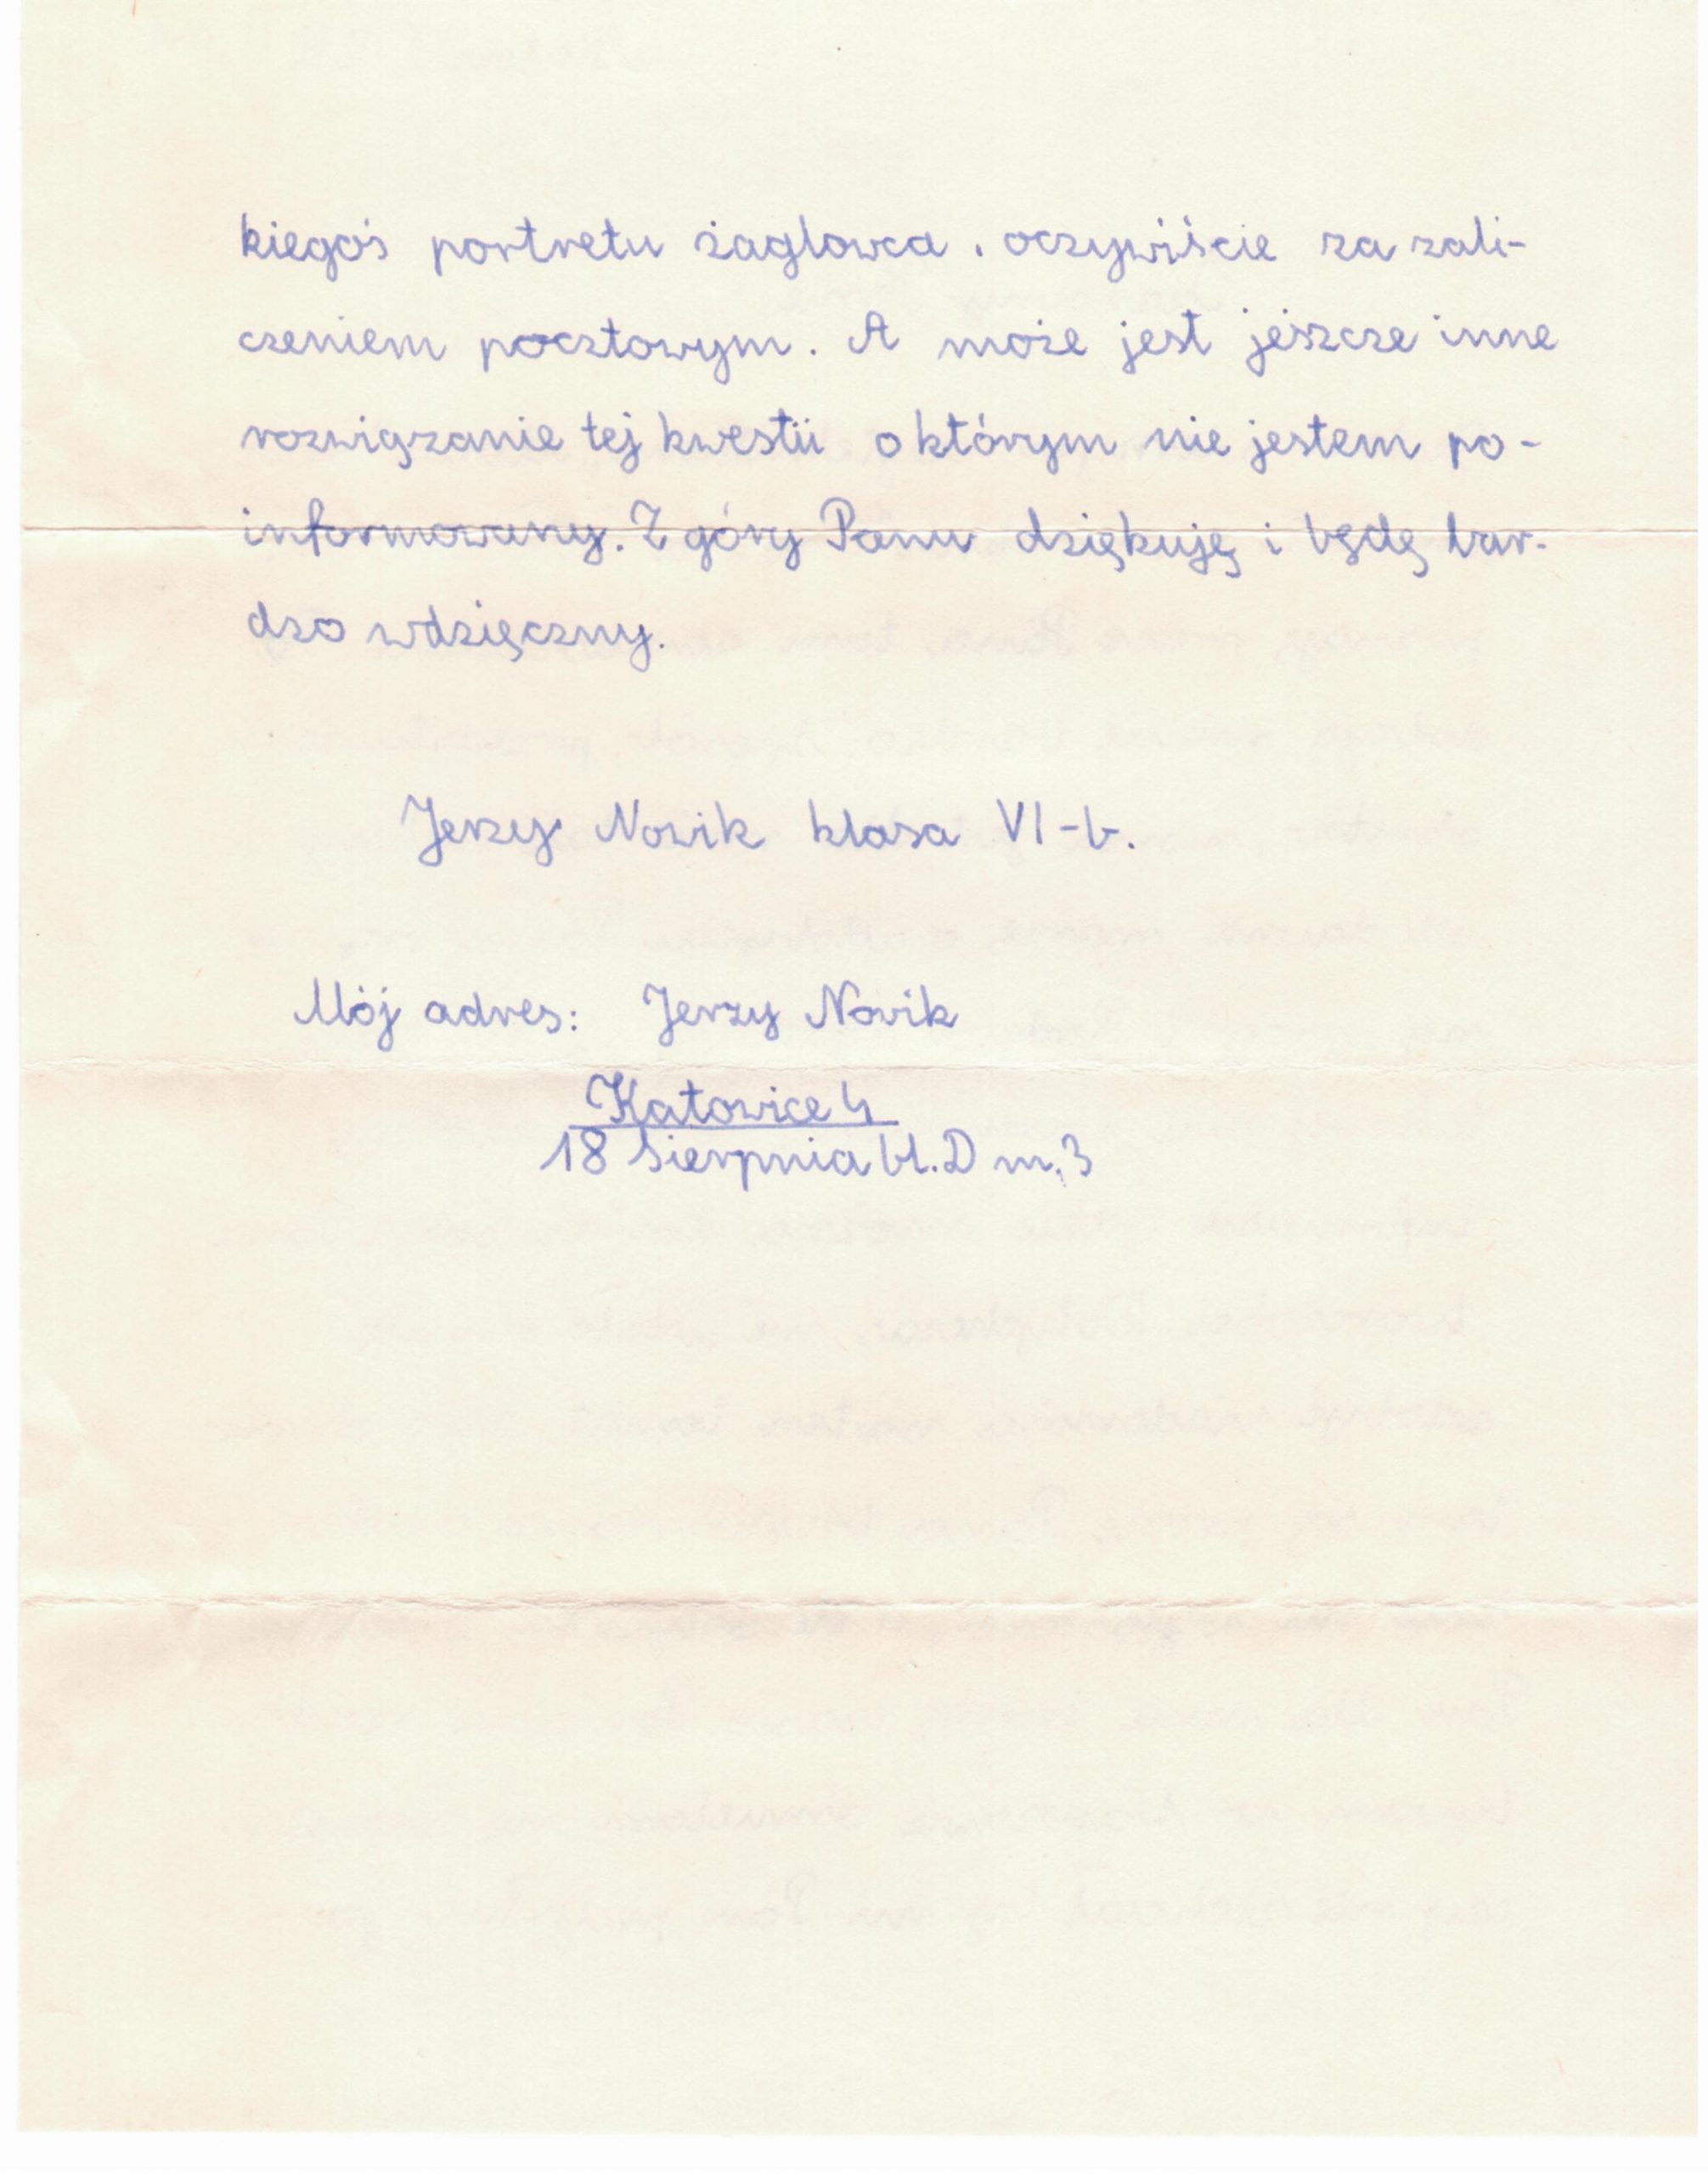 kiegoś portretu żaglowca, oczywiście za zali-
czeniem pocztowym. A może jest jeszcze inne
rozwiązanie tej kwestii o którym nie jestem po-
informowany. Z góry Panu dziękuję i będę bar-
dzo wdzięczny.
Jerzy Nowik klasa VI-b.
Mój adres: Jerzy Nowik
Katowice 4
18 Sierpnia bl. D m. 3